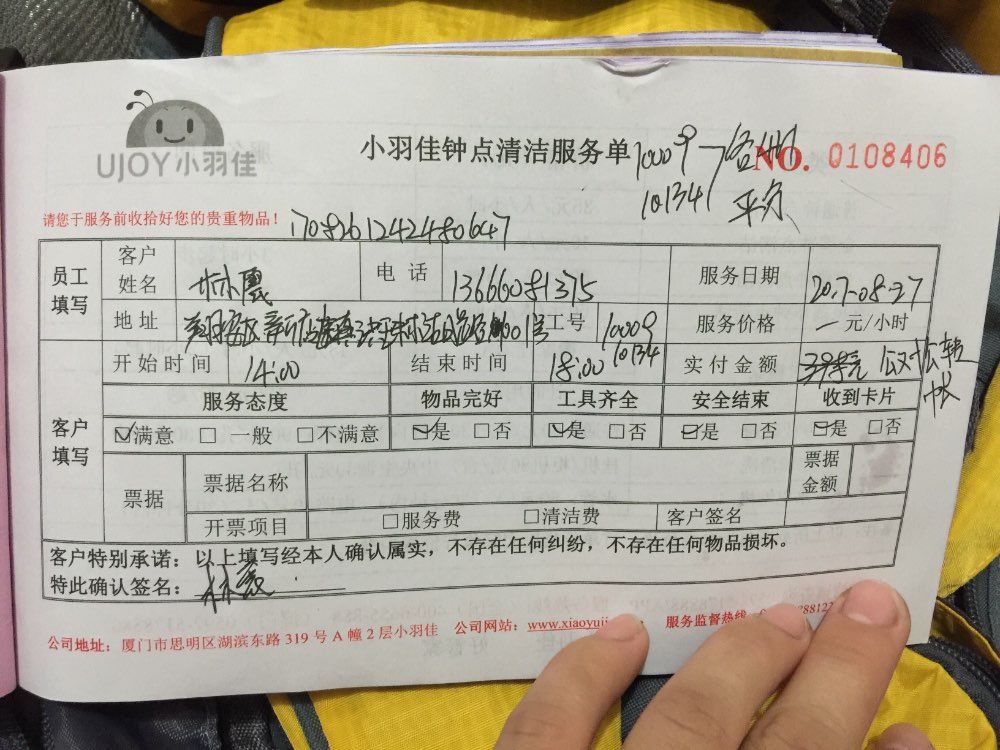 UJOY小羽佳
小羽佳钟点清洁服务单
10009
NO. 0108406
101341
请您于服务前收拾好您的贵重物品！
17082612424480647
员工填写 客户姓名 林 电话 1366081375 服务日期
地址 工号 10009 10134 服务价格 一 元/小时
客户填写 开始时间 14:00 结束时间 18:00 实付金额
服务态度 物品完好 工具齐全 安全结束 收到卡片
☑满意 □一般 □不满意 ☑是 □否 ☑是 □否 ☑是 □否 ☑是 □否
票据 票据名称 票据金额
开票项目 □服务费 □清洁费 客户签名
客户特别承诺：以上填写经本人确认属实，不存在任何纠纷，不存在任何物品损坏。
特此确认签名：林
公司地址：厦门市思明区湖滨东路 319 号 A 幢 2 层小羽佳 公司网站：www.xiaoyuji 服务监督热线